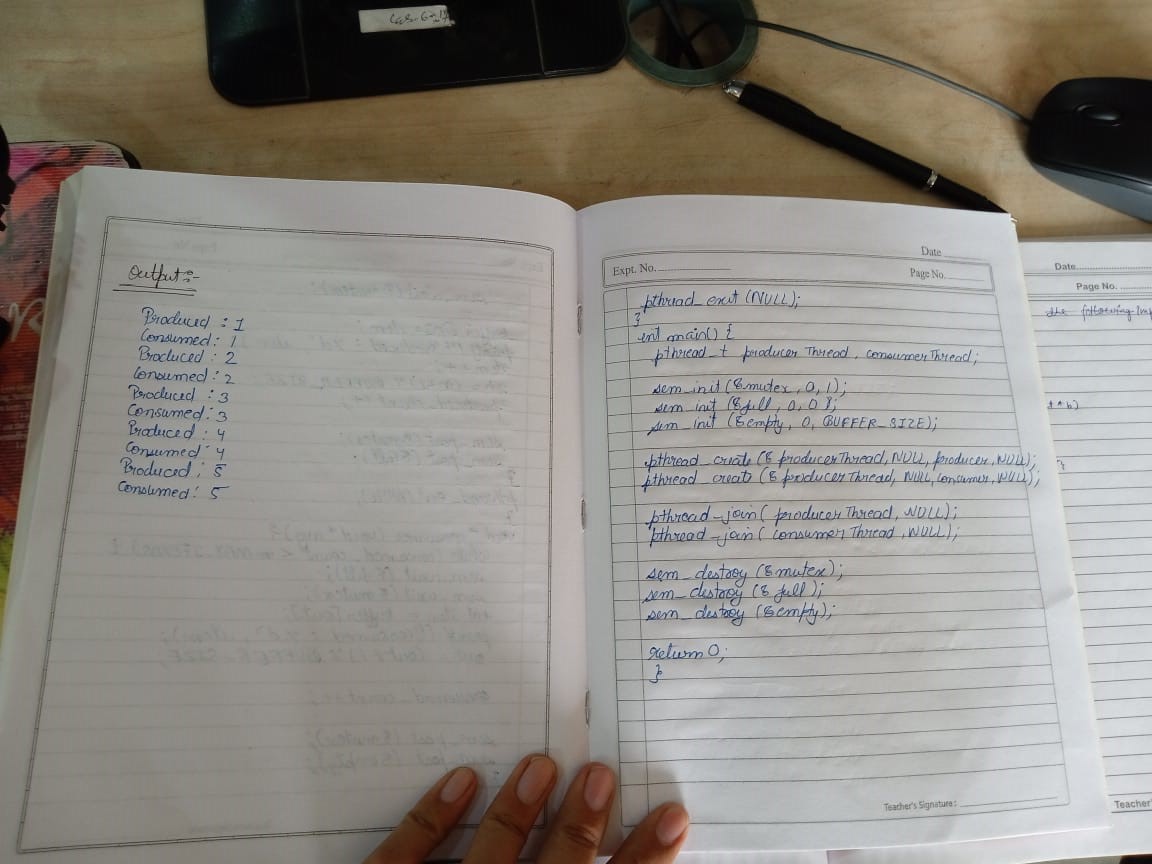 Output:-
Produced : 1
Consumed: 1
Produced : 2
Consumed : 2
Produced : 3
Consumed : 3
Produced : 4
Consumed : 4
Produced : 5
Consumed : 5
Date
Expt. No.
Page No.
pthread_exit (NULL);
}
int main() {
pthread_t producer Thread, consumer Thread;
sem_init (&mutex, 0, 1);
sem_init (&full, 0, 0);
sem_init (&empty, 0, BUFFER_SIZE);
pthread_create (& producerThread, NULL, producer, NULL);
pthread_create (& producerThread, NULL, consumer, NULL);
pthread_join( producer Thread, NULL);
pthread_join( consumer Thread, NULL);
sem_destroy (&mutex);
sem_destroy (& full);
sem_destroy (&empty);
return 0;
}
Teacher's Signature :
Date
Page No.
the following
* b)
Teacher'